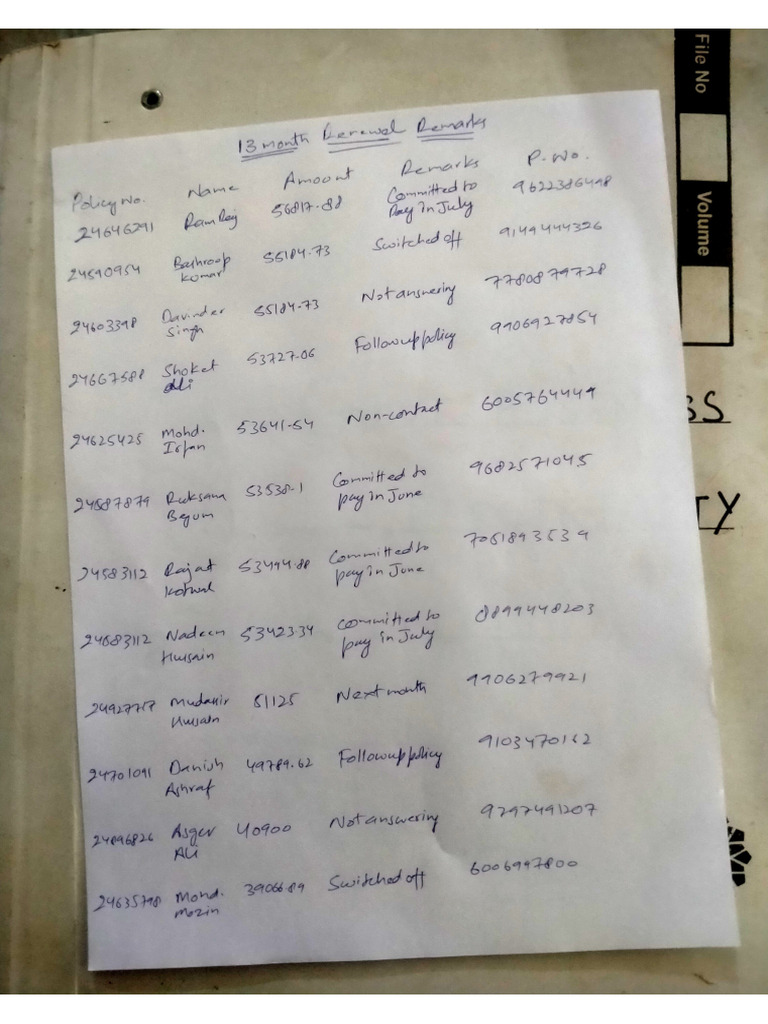 File No
Volume
13 month Renewal Remarks
Policy No. Name Amount Remarks P. No.
24646291 Ram Raj 56817.88 Committed to pay in July 9622386498
24590954 Bathroop Kumar 55184.73 Switched off 9149444326
24603398 Davinder Singh 55184.73 Not answering 7780879728
24667588 Shoket Ali 53727.06 Follow up policy 9906927854
24625425 Mohd. Irfan 53641.54 Non-contact 6005764449
24587879 Ruksana Begum 53538.1 Committed to pay in June 9682571045
24583112 Rajat Kotwal 53494.88 Committed to pay in June 7051893539
24683112 Nadeem Hussain 53423.34 Committed to pay in July 08899448203
Mudasir Hussain 51125 Next month 9906279921
24701091 Danish Ashraf 49789.62 Follow up policy 9103470162
24896826 Asger Ali 40900 Not answering 9297491207
24635798 Mohd. Mozin 39066.89 Switched off 6006997800
SS
TY